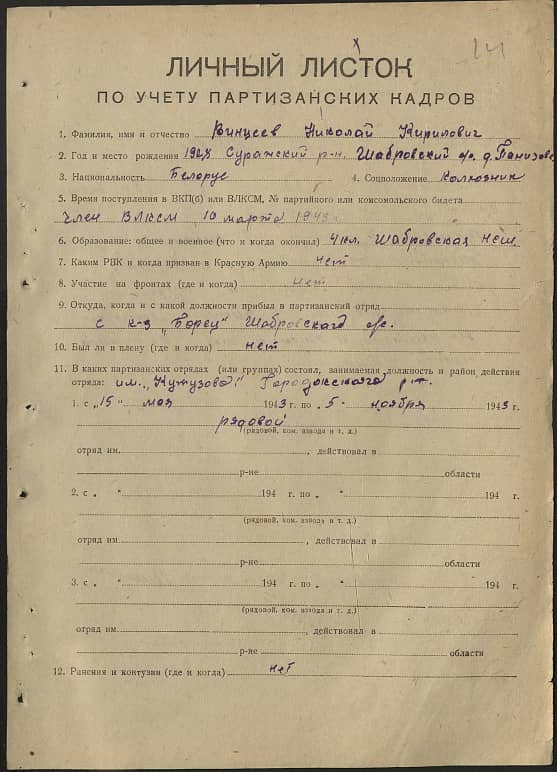 141
ЛИЧНЫЙ ЛИСТОК
ПО УЧЕТУ ПАРТИЗАНСКИХ КАДРОВ
1. Фамилия, имя и отчество Винцеев Николай Кирилович
2. Год и место рождения 1928 Суражский р-н. Шабровский с/с. д.
3. Национальность Белорус 4. Соцположение Колхозник
5. Время поступления в ВКП(б) или ВЛКСМ, № партийного или комсомольского билета
Член ВЛКСМ 10 марта 1943
6. Образование: общее и военное (что и когда окончил) 4 кл. Шабровская
7. Каким РВК и когда призван в Красную Армию нет
8. Участие на фронтах (где и когда) нет
9. Откуда, когда и с какой должности прибыл в партизанский отряд
с к-з "Борец" Шабровского с/с.
10. Был ли в плену (где и когда) нет
11. В каких партизанских отрядах (или группах) состоял, занимаемая должность и район действия
отряда: им. "Кутузова" Городокского р-н.
1. с „15" мая 1943 г. по „5" ноября 1943 г.
рядовой
(рядовой, ком. взвода и т. д.)
отряд им. , действовал в
р-не области
2. с „ " 194 г. по „ " 194 г.
(рядовой, ком. взвода и т. д.)
отряд им. , действовал в
р-не области
3. с „ " 194 г. по „ " 194 г.
(рядовой, ком. взвода и т. д.)
отряд им. , действовал в
р-не области
12. Ранения и контузии (где и когда) нет